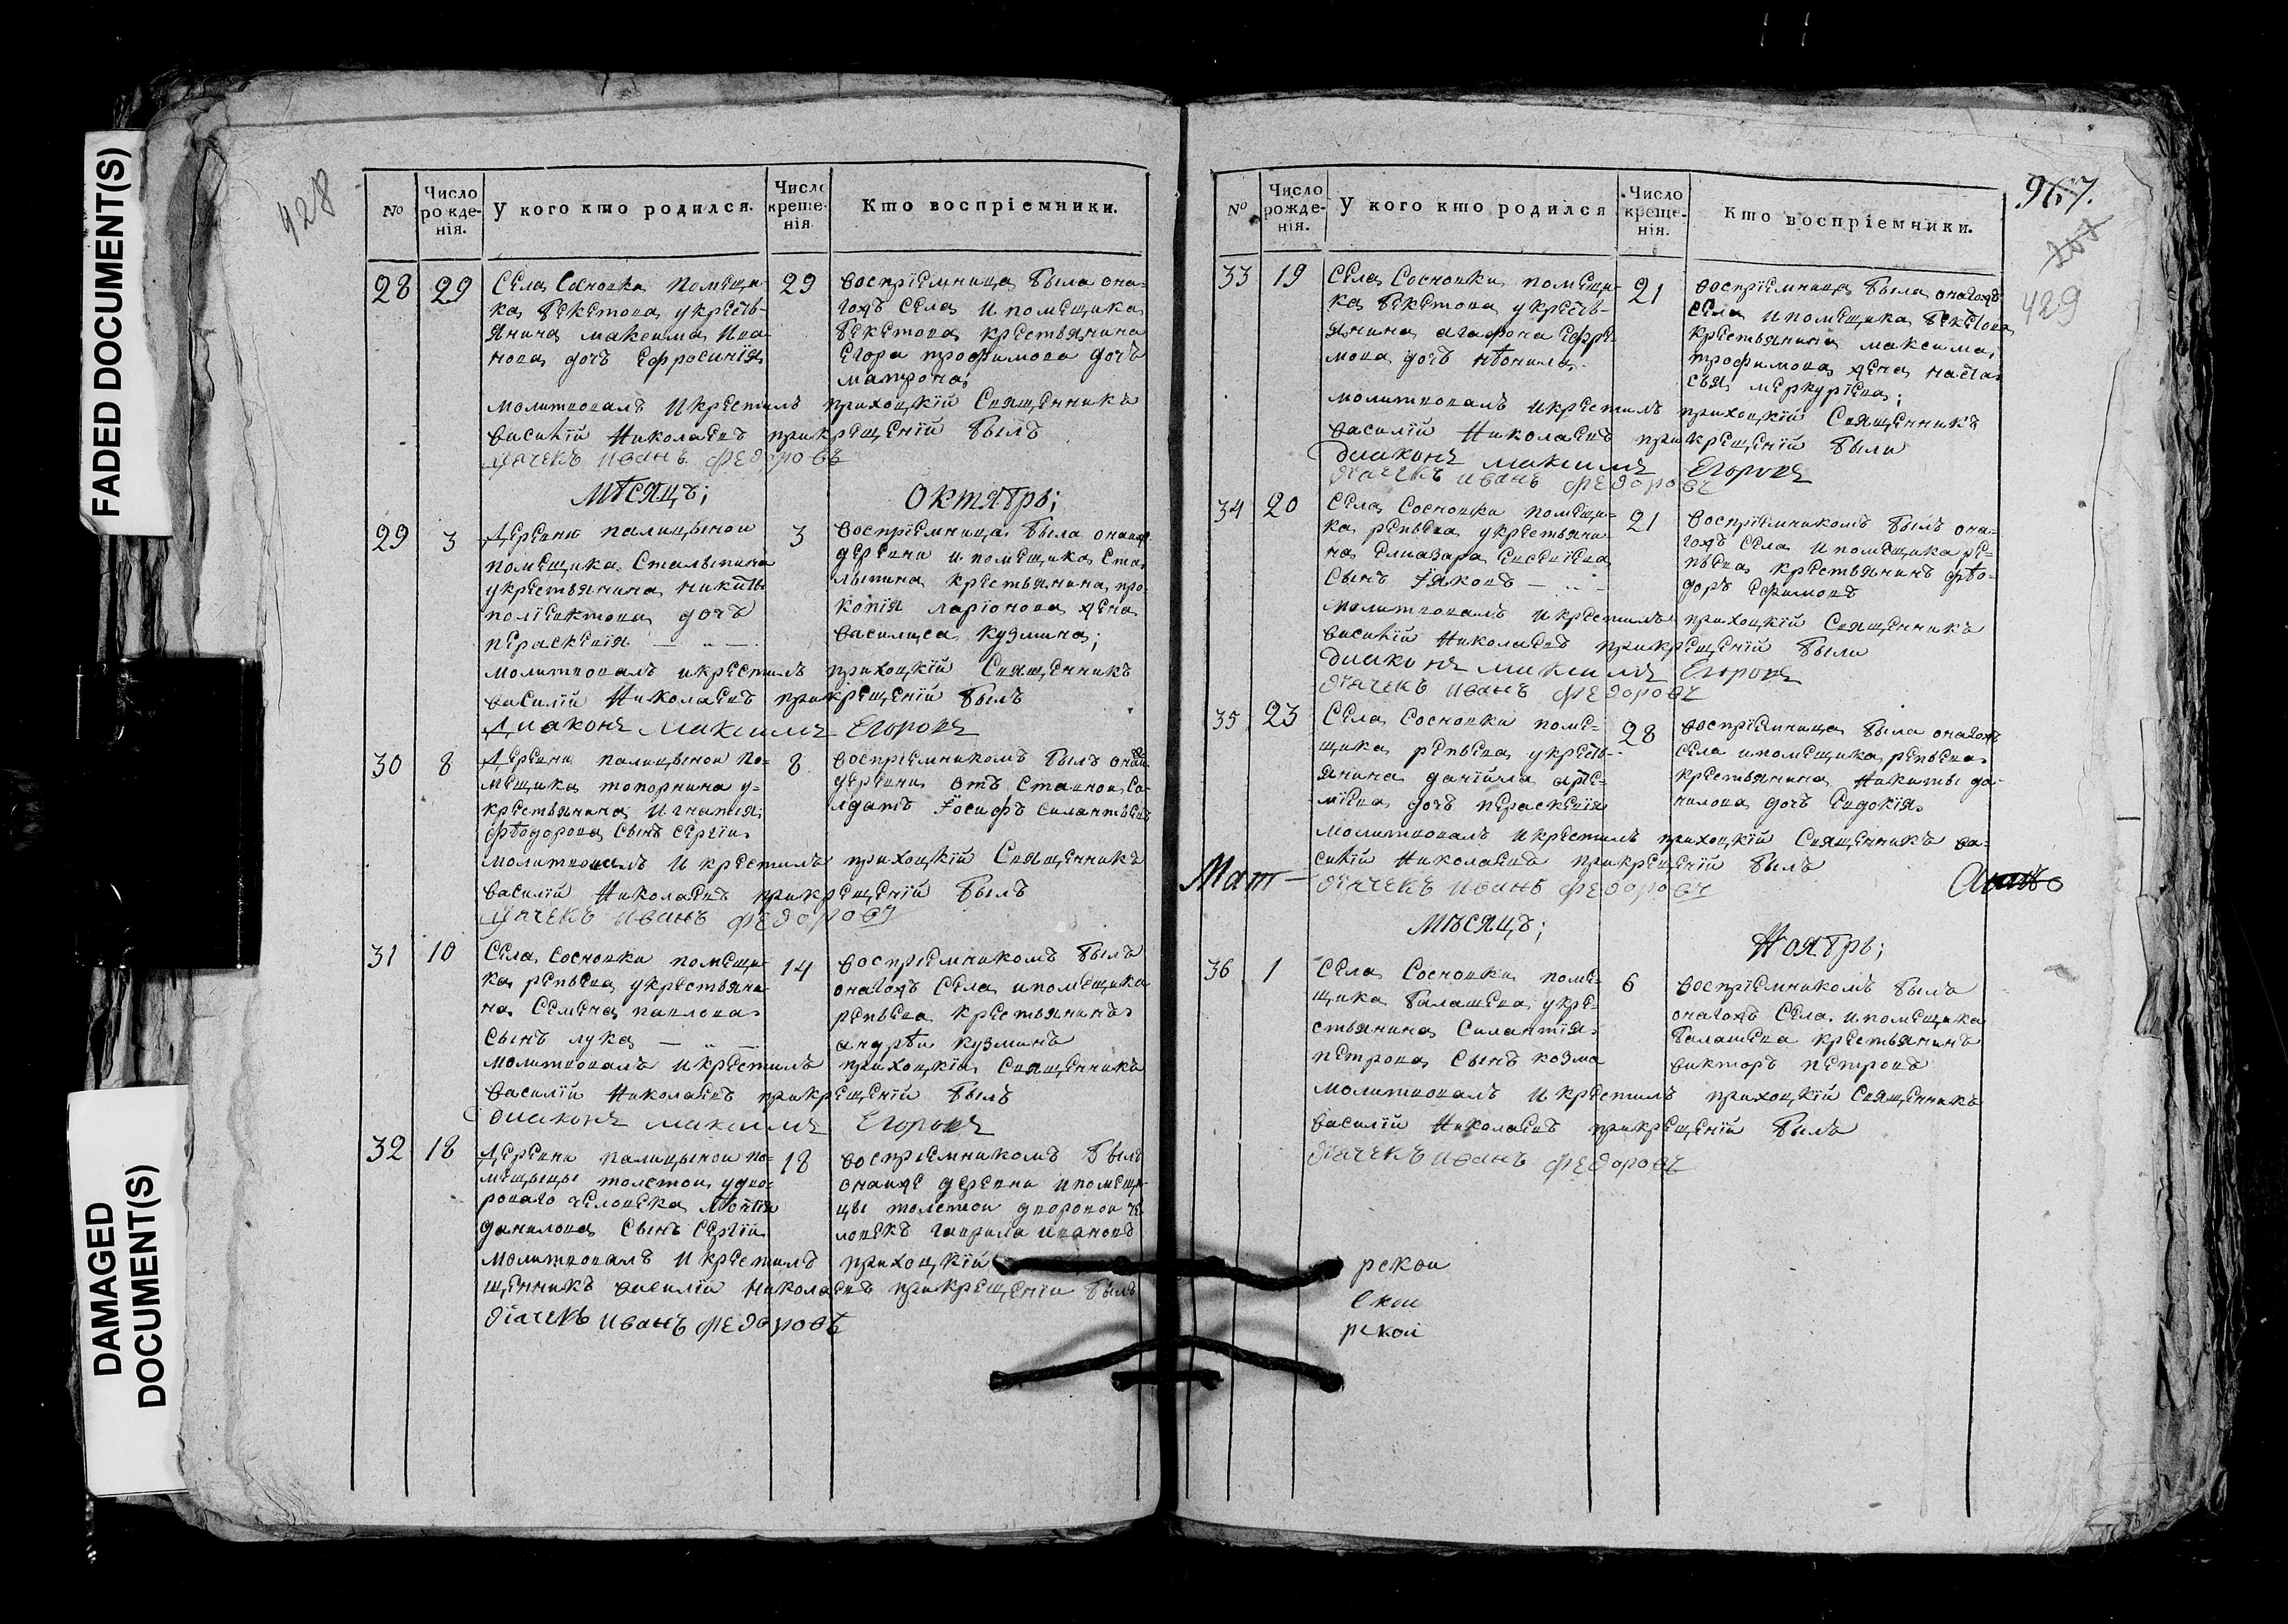 FADED DOCUMENT(S)
DAMAGED
DOCUMENT(S)
428
№
Число рожденія.
У кого кто родился.
Число крещенія
Кто воспріемники.
28
29
Села Сосновки помещи-
ка бекетова укресть-
янина максима Ива
нова дочь Ефросинія
29
воспріемница была она-
гожъ села ипомещика
бекетова крестьянина
Егора трофимова дочь
матрона;
молитвовалъ икрестилъ приходцкій Священникъ
василій Николаевъ прикрещеніи былъ
Дячекъ Иванъ Федоровъ
мѣсяцъ; Октябрь;
29
3
Деревни палицыной
помещика Столыпина
укрестьянина никиты
поліевктова дочь
перасковія — „ —
3
воспріемница была онаяже
деревни ипомещика Сто
лыпина крестьянина про-
копія ларіонова жена
василиса кузмина;
молитвовалъ икрестилъ приходцкій Священникъ
василій Николаевъ прикрещеніи былъ
Диаконъ Максимъ Егоровъ
30
8
Деревни палицыной по-
мещика топорнина у-
крестьянина Игнатія
Ѳеодорова сынъ сергіи
8
воспріемникомъ былъ онаи
деревни отъ ставнои со-
лдатъ Іосифъ силантьевъ
молитвовалъ икрестилъ приходцкій Священникъ
василій Николаевъ прикрещеніи былъ
Дячекъ Иванъ Федоровъ
31
10
Села Сосновки помещи-
ка репьева укрестьяни
на семена павлова
сынъ лука — „ —
14
воспріемникомъ былъ
онагожъ села ипомещика
репьева крестьянинъ
андрѣи кузминъ
молитвовалъ икрестилъ приходцкіи Священникъ
василій Николаевъ прикрещеніи былъ
диаконъ максимъ Егоровъ
32
18
Деревни палицыной по-
мещицы толстои удво-
роваго человека
данилова сынъ сергіи
18
воспріемникомъ былъ
онаиже деревни ипомещи-
цы толстои дворовои че
ловекъ гаврила ивановъ
молитвовалъ икрестилъ приходцкій
щенникъ василіи николаевъ прикрещеніи былъ
діачекъ Иванъ Федоровъ
967.
429
№
Число рожденія.
У кого кто родился
Число крещенія.
Кто воспріемники.
33
19
Села Сосновки помещи-
ка бекетова укресть-
янина агафона Ефре-
мова дочь нѣонила
21
воспріемница была онагожъ
села ипомещика бекетова
крестьянина максима
трофимова жена наста
сья меркурьева;
молитвовалъ икрестилъ приходцкій Священникъ
василій Николаевъ прикрещеніи были
диаконъ максимъ Егоровъ
діачекъ иванъ федоровъ
34
20
Села Сосновки помещи-
ка репьева укрестьяни
на Елиазара Евсевіева
сынъ Іяковъ —
21
воспріемникомъ былъ она-
гожъ села ипомещика ре-
пьева крестьянинъ Ѳео-
доръ ефимовъ
молитвовалъ икрестилъ приходцкій Священникъ
василій Николаевъ прикрещеніи были
диаконъ максимъ Егоровъ
діачекъ иванъ федоровъ
35
23
Села Сосновки поме-
щика репьева укресть-
янина даніила арте-
міева дочь перасковія
28
воспріемница была онагожъ
села ипомещика репьева
крестьянина Никиты да-
нилова дочь Евдокія
молитвовалъ икрестилъ приходцкій Священникъ ва-
силій Николаевъ прикрещеніи былъ
Мат—
діачекъ иванъ федоровъ
мѣсяцъ; Ноябрь;
36
1
Села Сосновки поме-
щика балашева укре-
стьянина Силантія
петрова сынъ козма
6
воспріемникомъ былъ
онагожъ села ипомещика
балашева крестьянинъ
викторъ петровъ
молитвовалъ икрестилъ приходцкій Священникъ
василій Николаевъ прикрещеніи былъ
діачекъ иванъ федоровъ
рской
ской
рской